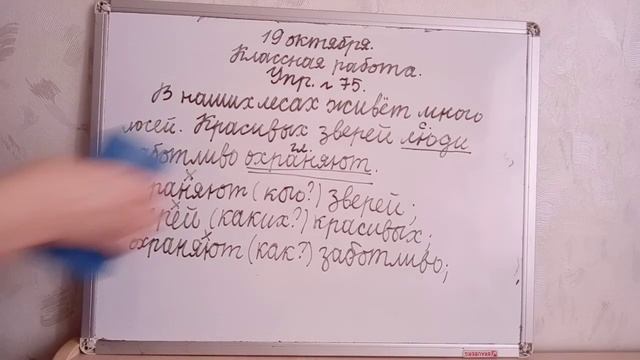 19 октября.
Классная работа.
Упр. 75.
В наших лесах живёт много
лосей. Красивых зверей люди
заботливо охраняют.
охраняют (кого?) зверей;
зверей (каких?) красивых;
охраняют (как?) заботливо;